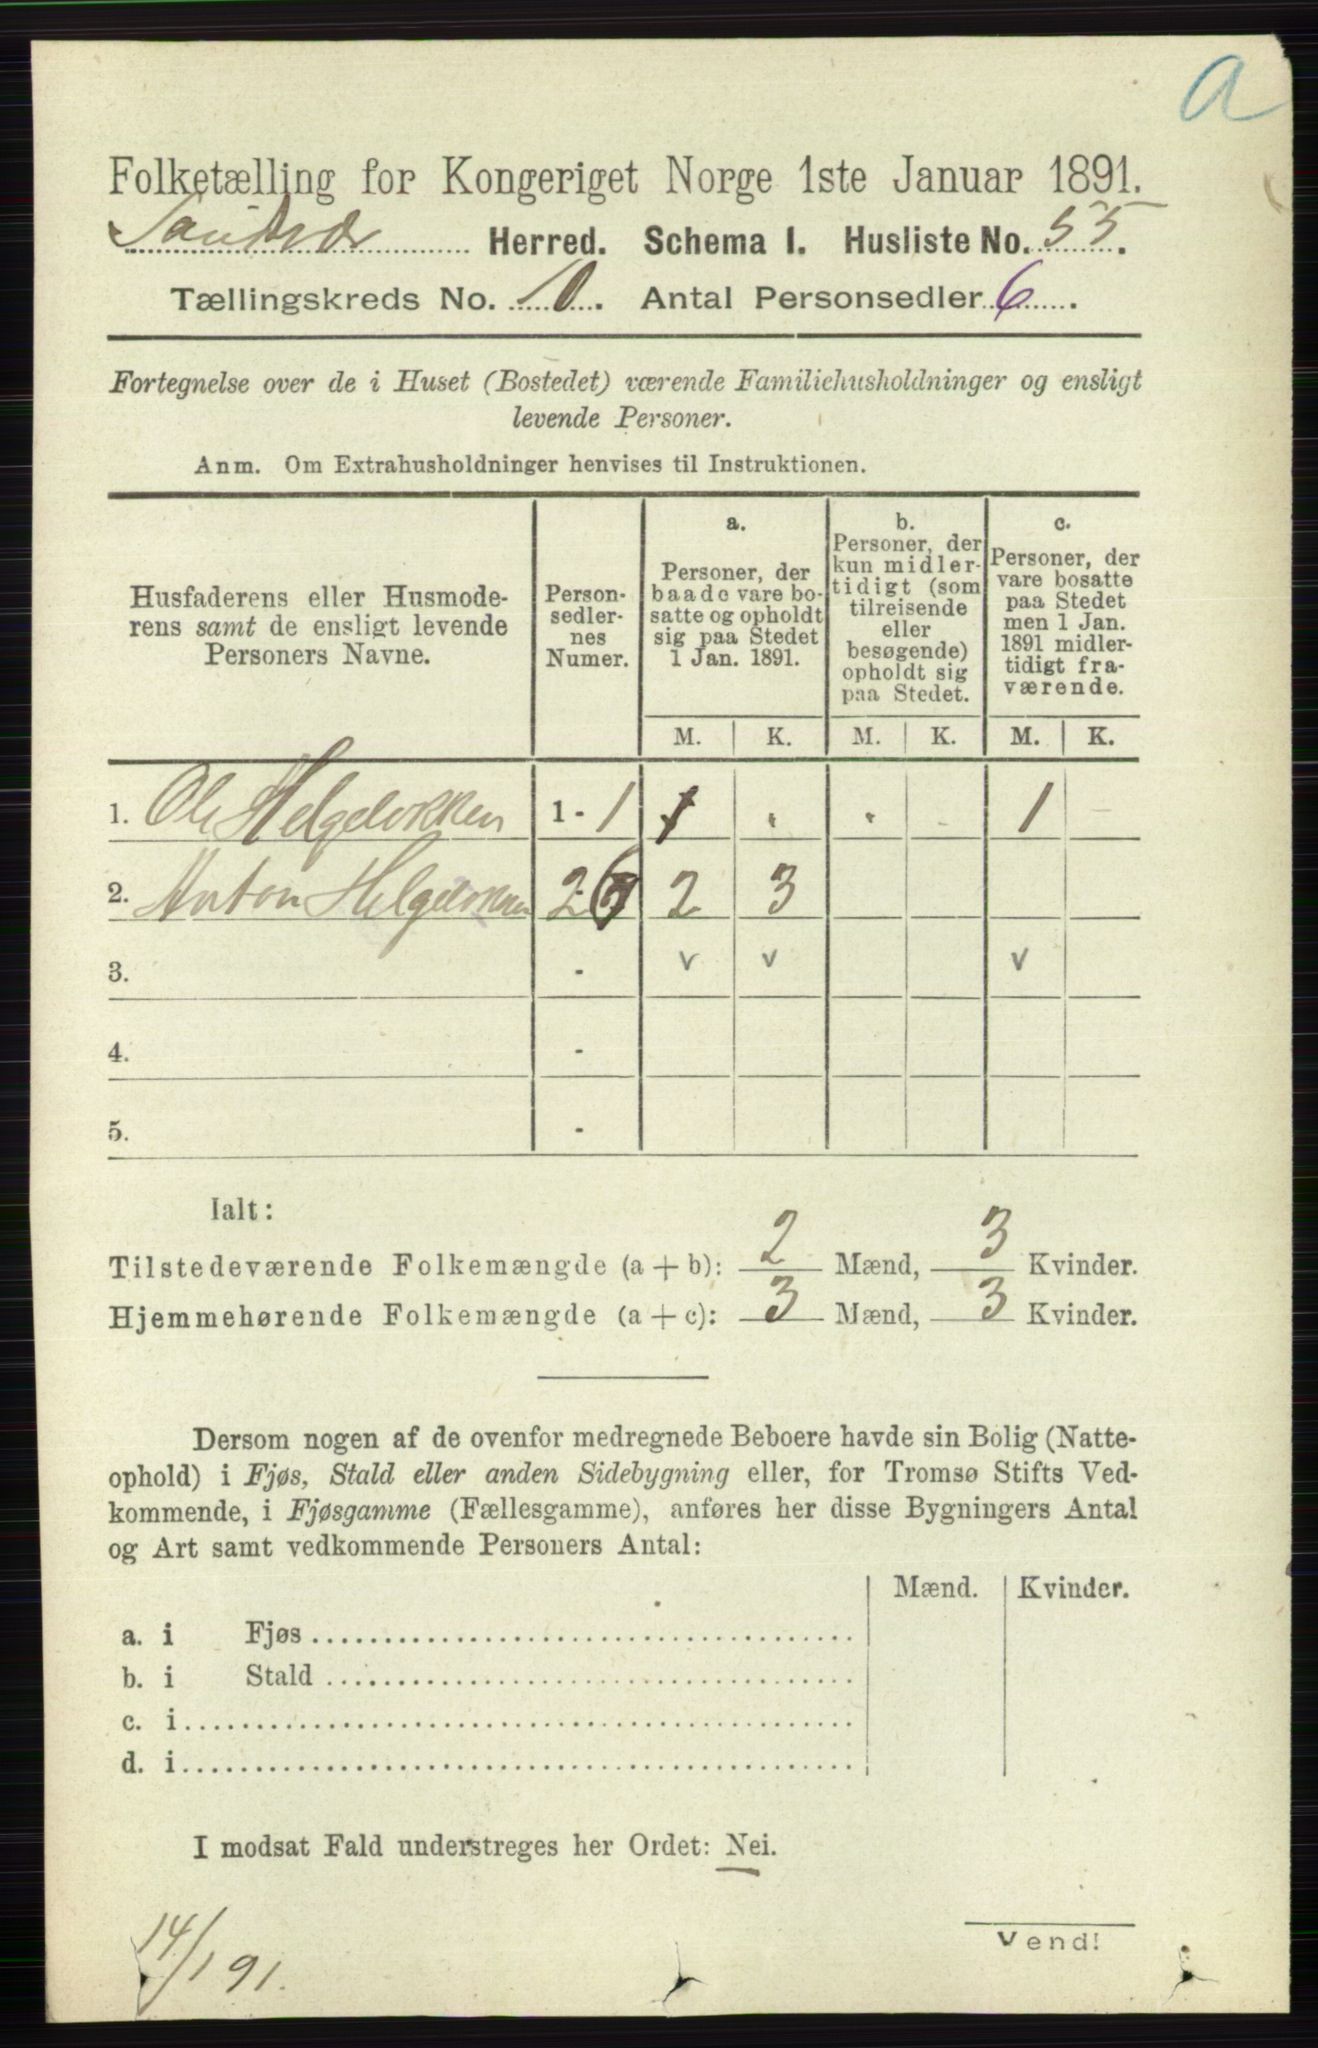 a
Folketælling for Kongeriget Norge 1ste Januar 1891.
Herred. Schema 1. Husliste No. 55.
Tællingskreds No. 10. Antal Personsedler 6.
Fortegnelse over de i Huset (Bostedet) værende Familiehusholdninger og ensligt
levende Personer.
Anm. Om Extrahusholdninger henvises til Instruktionen.
Husfaderens eller Husmode-
rens samt de ensligt levende
Personers Navne.
Person-
sedler-
nes
Numer.
a.
Personer, der
baade vare bo-
satte og opholdt
sig paa Stedet
1 Jan. 1891.
b.
Personer, der
kun midler-
tidigt (som
tilreisende
eller
besøgende)
opholdt sig
paa Stedet.
c.
Personer, der
vare bosatte
paa Stedet
men 1 Jan.
1891 midler-
tidigt fra-
værende.
M. K. M. K. M. K.
1. Ole Helgeløkken 1 - 1 1 . . - 1 -
2. Anton Helgeløkken 2 - 2 3
3. - v v v
4. -
5. -
Ialt:
Tilstedeværende Folkemængde (a + b): 2 Mænd, 3 Kvinder.
Hjemmehørende Folkemængde (a + c): 3 Mænd, 3 Kvinder.
Dersom nogen af de ovenfor medregnede Beboere havde sin Bolig (Natte-
ophold) i Fjøs, Stald eller anden Sidebygning eller, for Tromsø Stifts Ved-
kommende, i Fjøsgamme (Fællesgamme), anføres her disse Bygningers Antal
og Art samt vedkommende Personers Antal:
Mænd. Kvinder.
a. i Fjøs
b. i Stald
c. i
d. i
I modsat Fald understreges her Ordet: Nei.
14/1 91.
Vend!